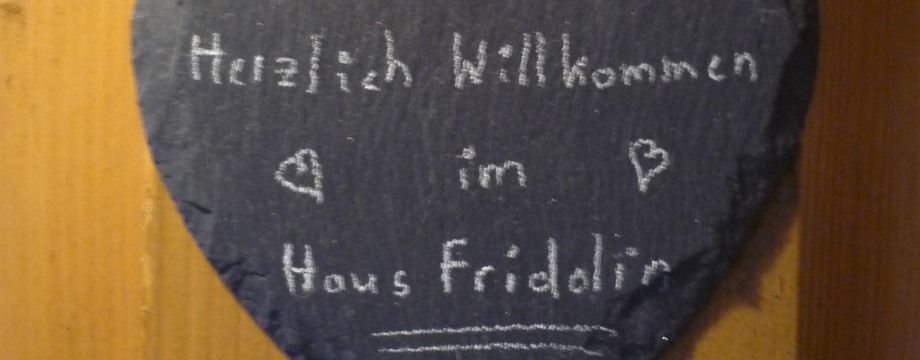 Herzlich Willkommen
im
Haus Fridolin